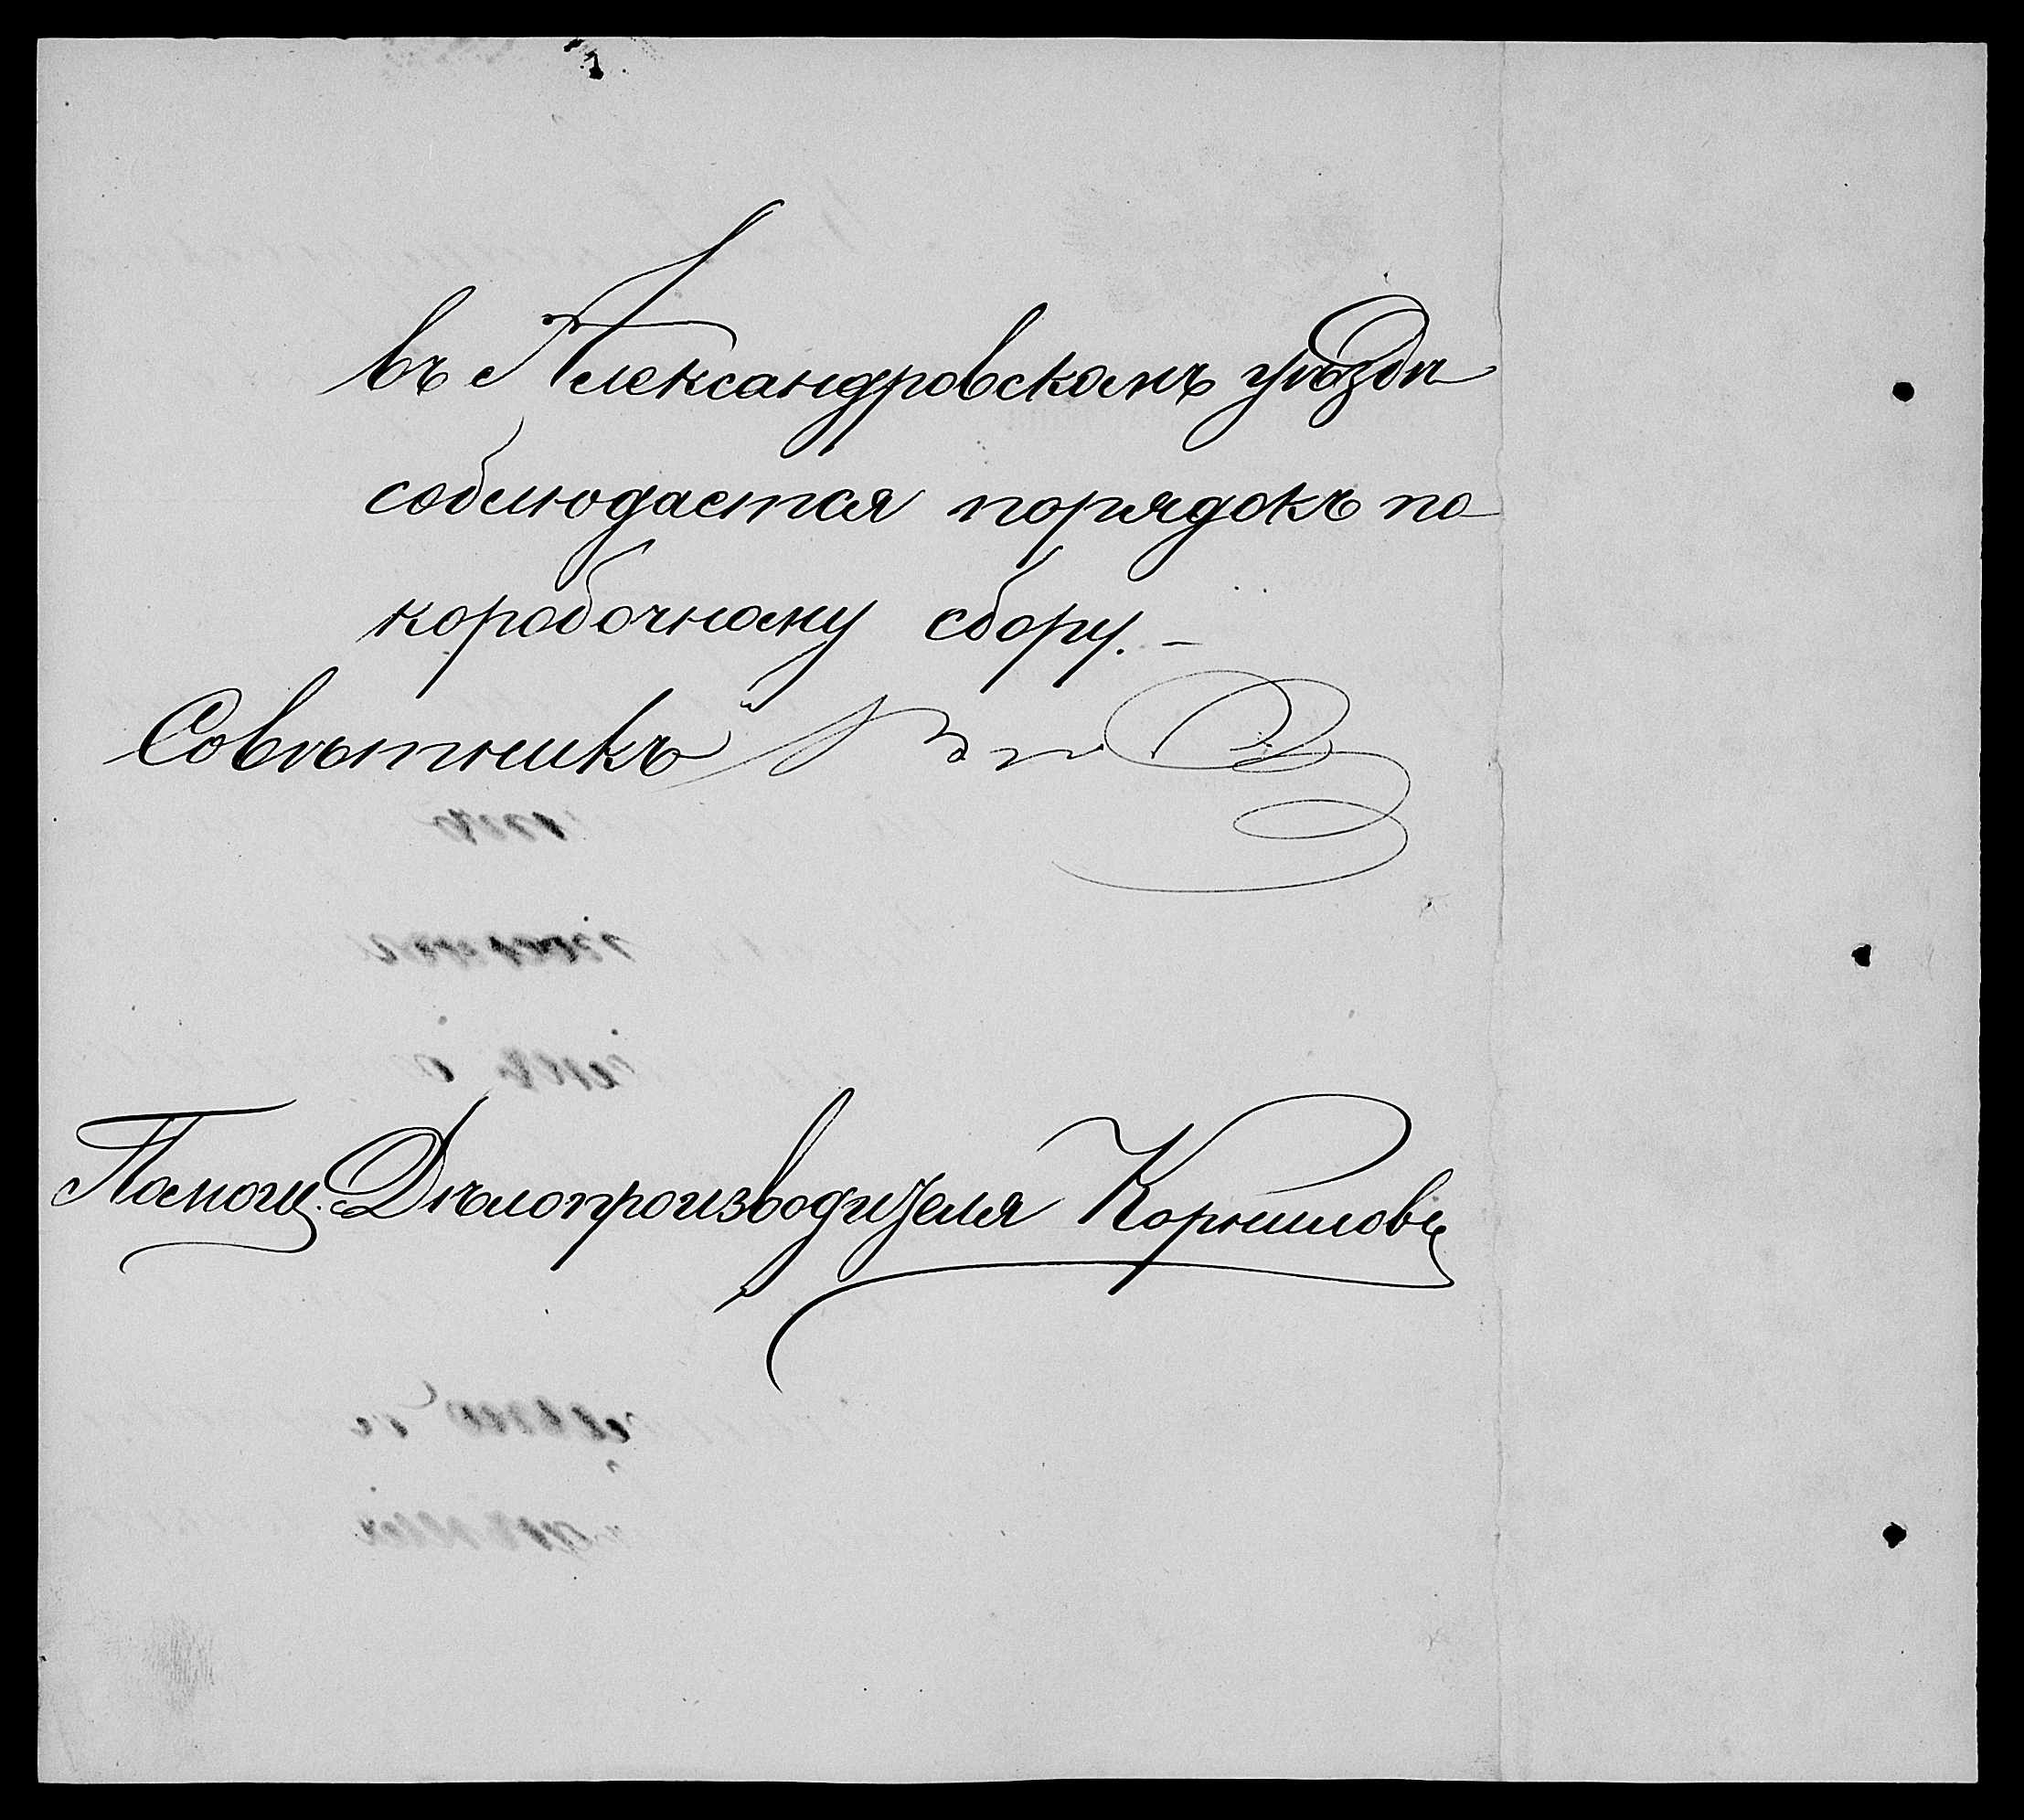 въ Александровскомъ уѣздѣ
соблюдается порядокъ по
коробочному сбору. —
Совѣтникъ
Помощ. Дѣлопроизводителя Корниловъ